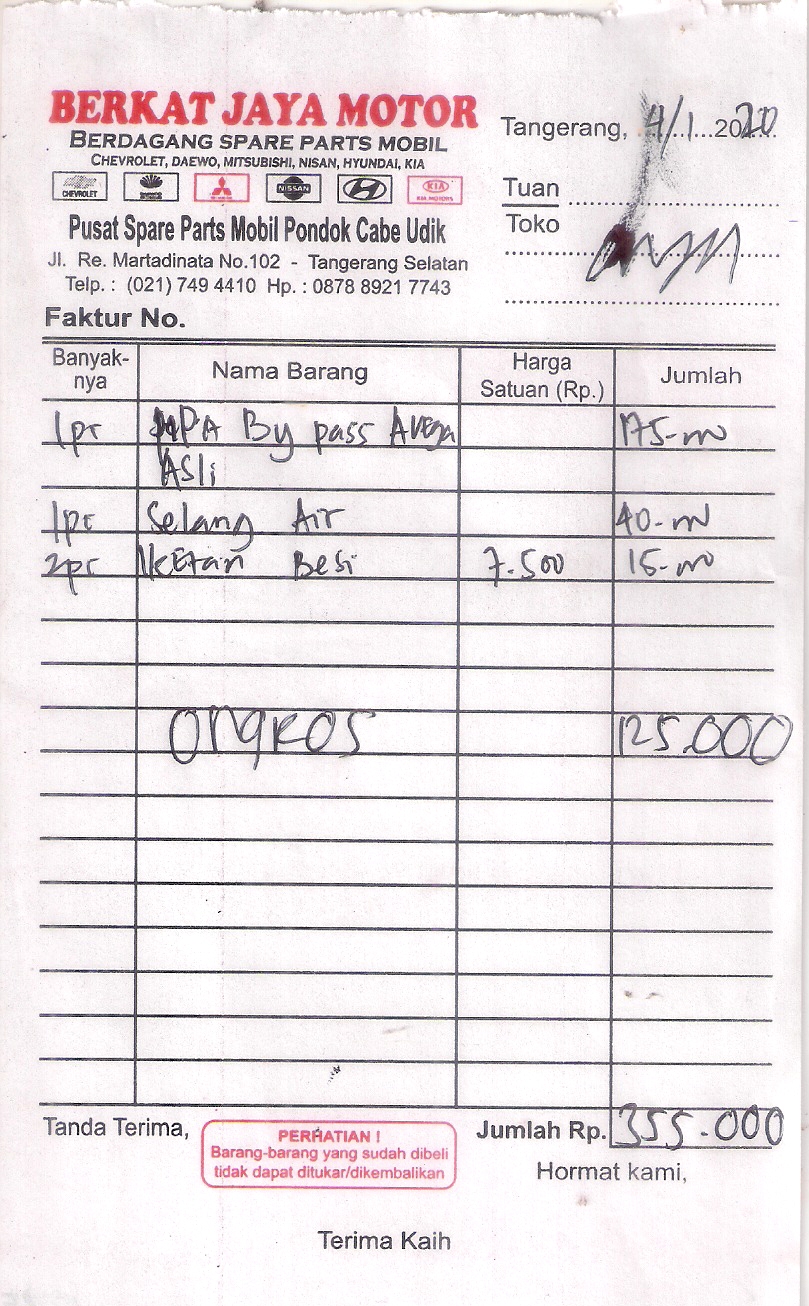 BERKAT JAYA MOTOR
BERDAGANG SPARE PARTS MOBIL
CHEVROLET, DAEWO, MITSUBISHI, NISAN, HYUNDAI, KIA
CHEVROLET NISSAN KIA
KIA MOTORS
Pusat Spare Parts Mobil Pondok Cabe Udik
Jl. Re. Martadinata No.102 - Tangerang Selatan
Telp. : (021) 749 4410 Hp. : 0878 8921 7743
Tangerang, 4/1 2020
Tuan
Toko
Faktur No.
Banyak-nya Nama Barang Harga Satuan (Rp.) Jumlah
1pc By pass Avega 175-m
ASli
1pc Selang Air 40-m
2pc Iketan Besi 7.500 15-m
ongkos 125.000
Tanda Terima,
PERHATIAN !
Barang-barang yang sudah dibeli
tidak dapat ditukar/dikembalikan
Jumlah Rp. 355.000
Hormat kami,
Terima Kaih